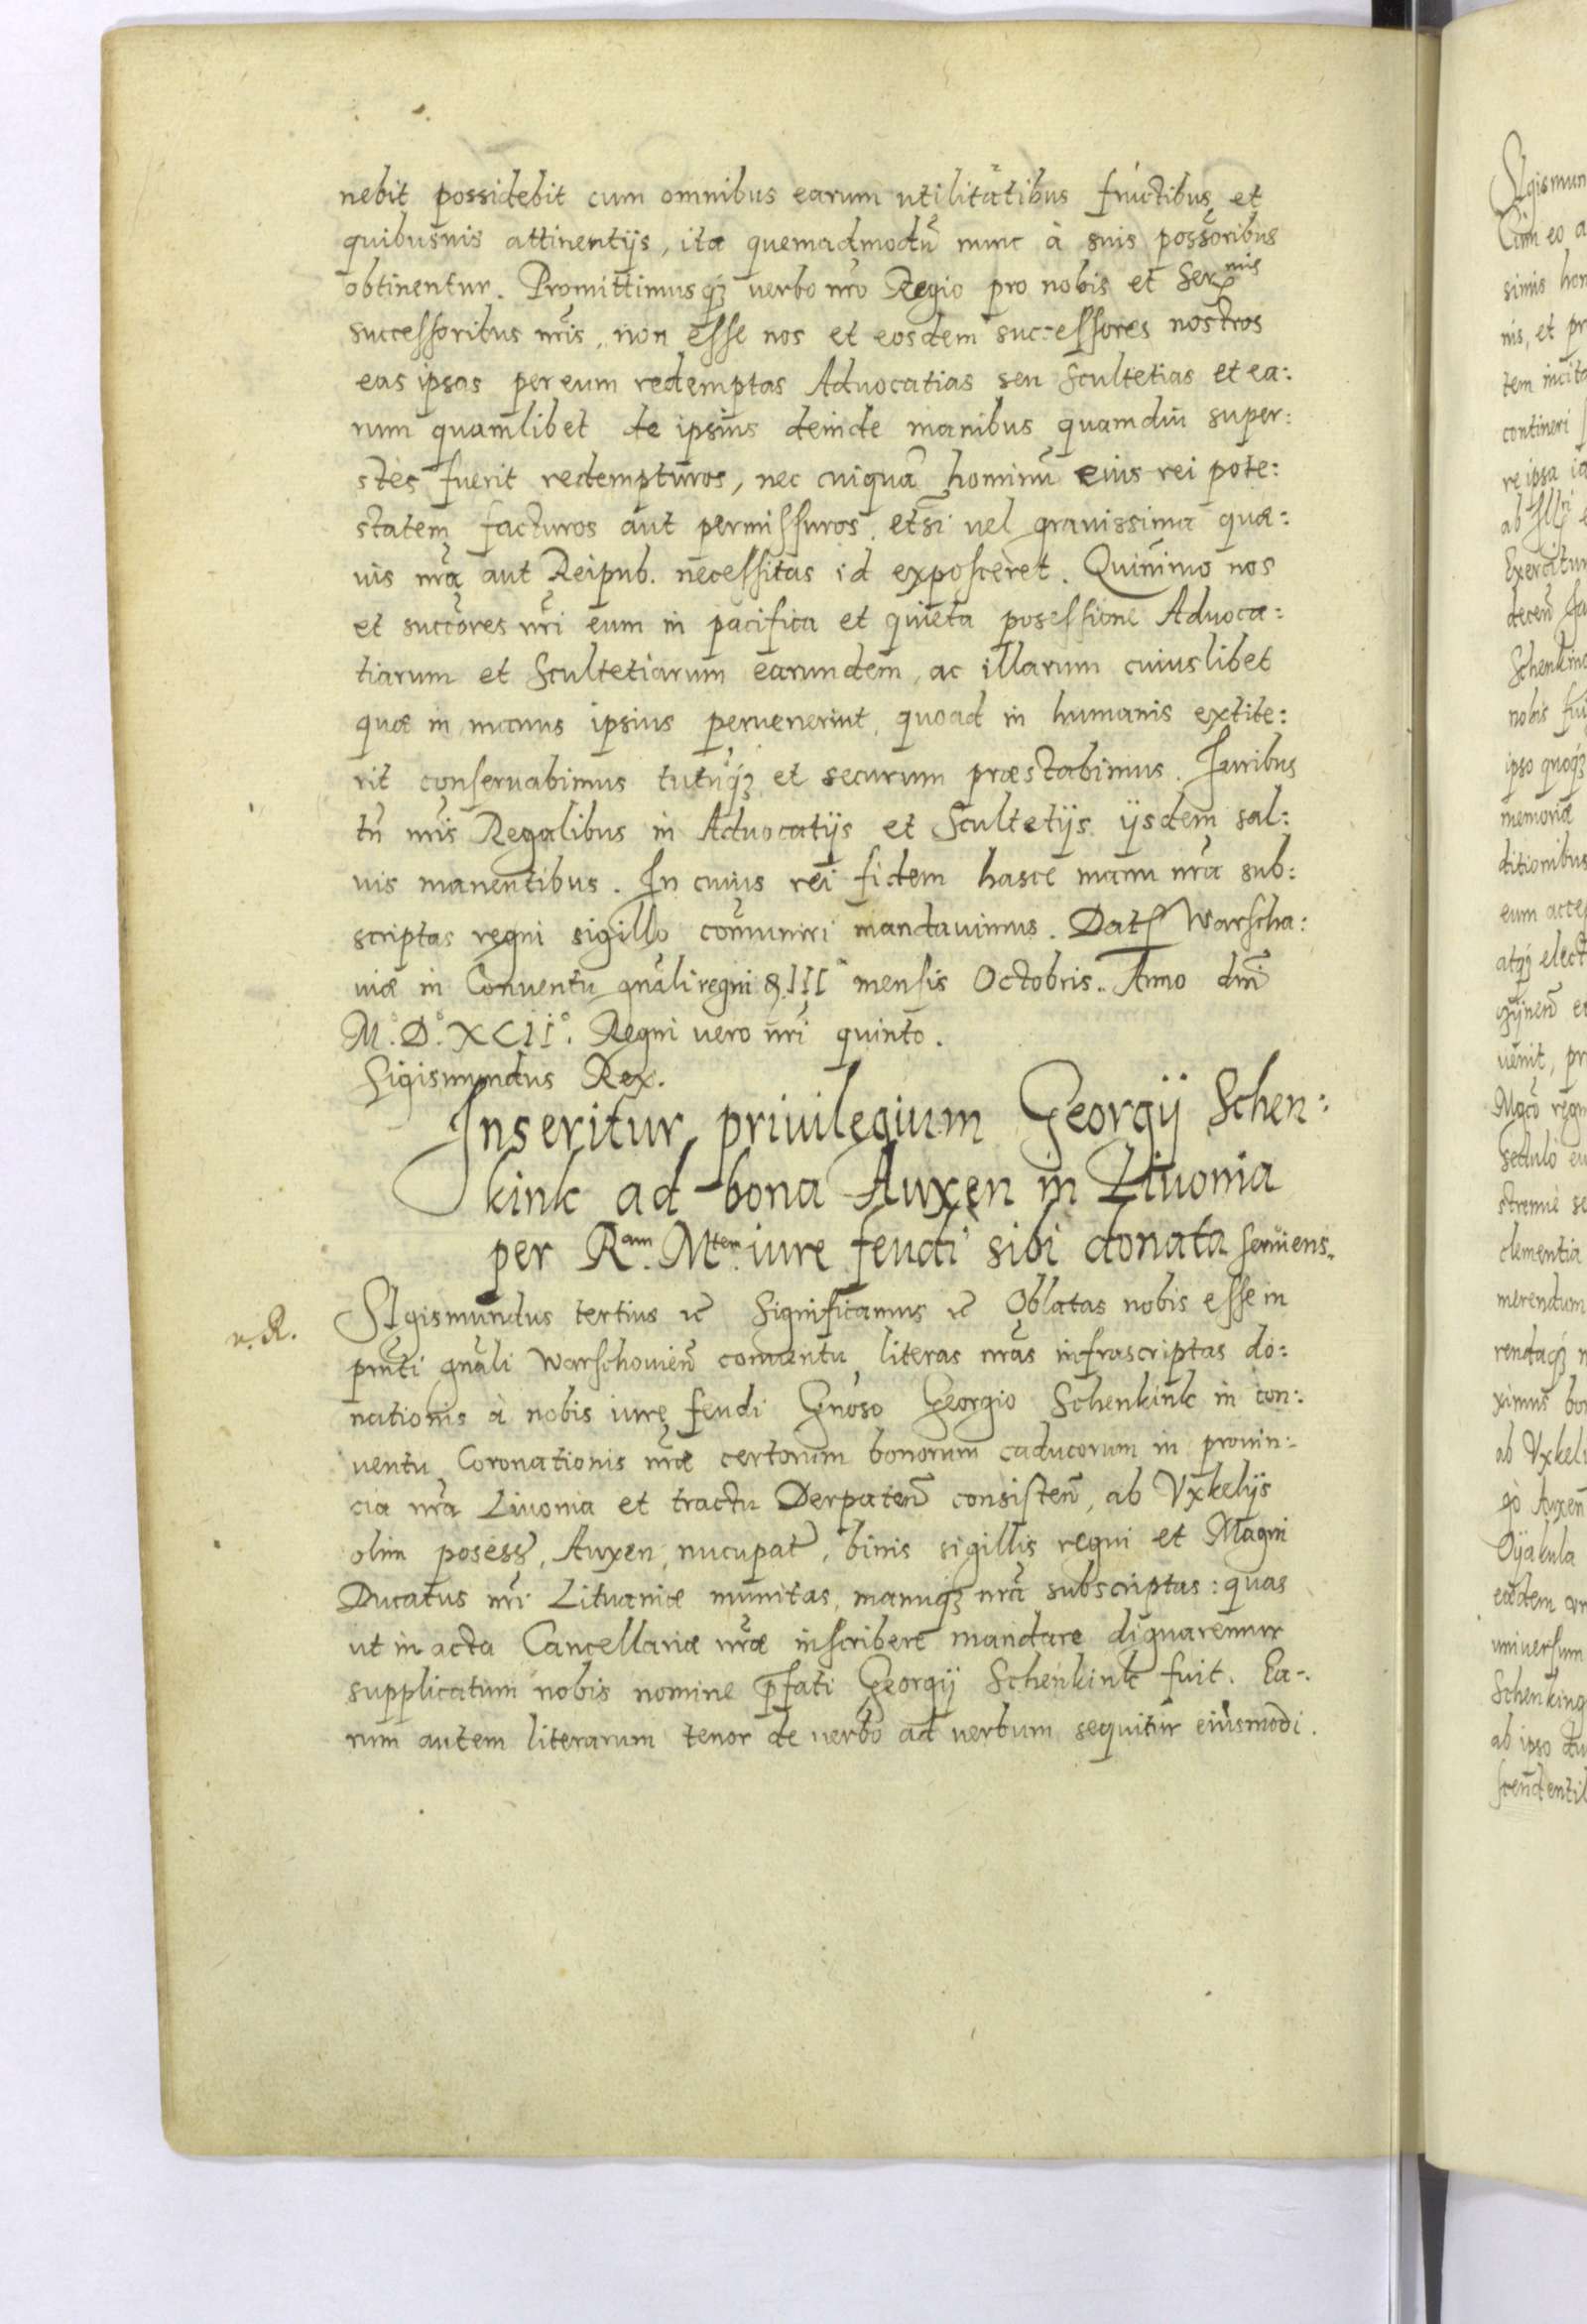 nebit possidebit cum omnibus earum utilitatibus fructibus et
quibusuis attinentijs, ita quemadmodū nunc à suis possōribus
obtinentur. Promittimusq₃ uerbo nr̄o Regio pro nobis et Serᵐⁱˢ
successoribus nr̄is, non esse nos et eosdem successores nostros
eas ipsas per eum redemptas Aduocatias seu Scultetias et ea:
rum quamlibet de ipsius deinde manibus quamdiu super:
stes fuerit redempturos, nec cuiquā hominū eius rei pote:
statem facturos aut permissuros, etsi uel grauissima quæ:
uis nr̄a aut Reipub. necessitas id exposceret. Quinimo nos
et succōres nr̄i eum in pacifica et quieta posessione Aduoca:
tiarum et Scultetiarum earundem, ac illarum cuiuslibet
quæ in manus ipsius peruenerint, quoad in humanis extite:
rit conseruabimus tutūq₃ et securum præstabimus. Juribus
tn̄ nr̄is Regalibus in Aduocatijs et Scultetijs ijsdem sal:
uis manentibus. In cuius rei fidem hasce manu nr̄a sub:
scriptas regni sigillo com̄uniri mandauimus. Dat Warscha:
uiæ in Conuentu gn̄ali regni III mensis Octobris. Anno dn̄i
M.° D.° XCII.° Regni uero nr̄i quinto.
Sigismundus Rex.
Inseritur priuilegium Georgij Schen:
kink ad bona Auxen in Liuonia
per Rᵃᵐ. Mᵗᵉᵐ. iure feudi sibi donata seruiens.
n. R.
SIgismundus tertius etc̄ Significamus etc̄ Oblatas nobis esse in
prn̄ti gn̄ali Warschouien̄ conuentu literas nr̄as infrascriptas do:
nationis à nobis iure feudi Gn̄oso Georgio Schenkink in con:
uentu Coronationis nr̄æ certorum bonorum caducorum in prouin:
cia nr̄a Liuonia et tractu Derpaten̄ consisten̄, ab Vxkelijs
olim posess, Auxen nucupat̄, binis sigillis regni et Magni
Ducatus nr̄i Lituaniæ munitas, manuq₃ nr̄a subscriptas: quas
ut in acta Cancellariæ nr̄æ inscribere mandare dignaremur
supplicatum nobis nomine p̄fati Georgij Schenkink fuit. Ea:
rum autem literarum tenor de uerbo ad uerbum sequitur eiusmodi.